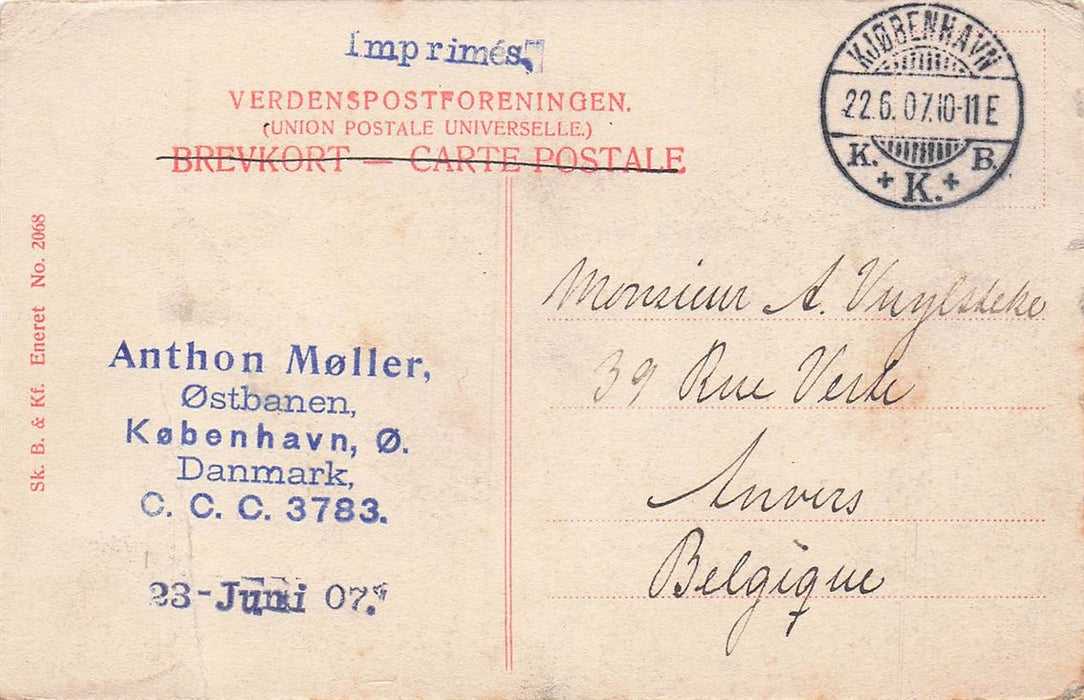 Imprimés.
VERDENSPOSTFORENINGEN.
(UNION POSTALE UNIVERSELLE.)
BREVKORT — CARTE POSTALE
KJØBENHAVN
22.6.07.10-11 E
K. K. B.
Sk. B. & Kf. Eneret No. 2068
Anthon Møller,
Østbanen,
København, Ø.
Danmark,
C. C. C. 3783.
23-Juni 07.
Monsieur A. Vuylsteke
39 Rue Verte
Anvers
Belgique